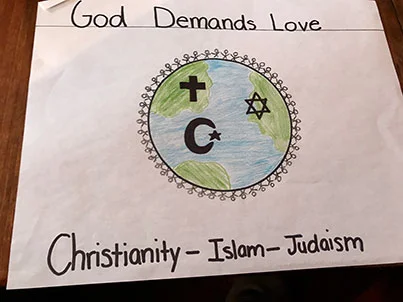 God Demands Love
Christianity - Islam - Judaism